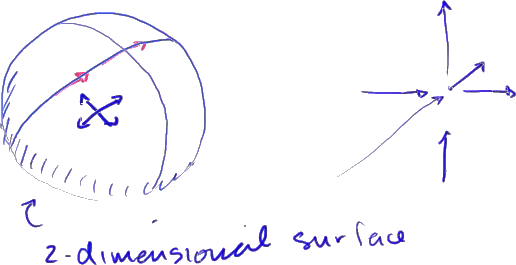 2-dimensional surface